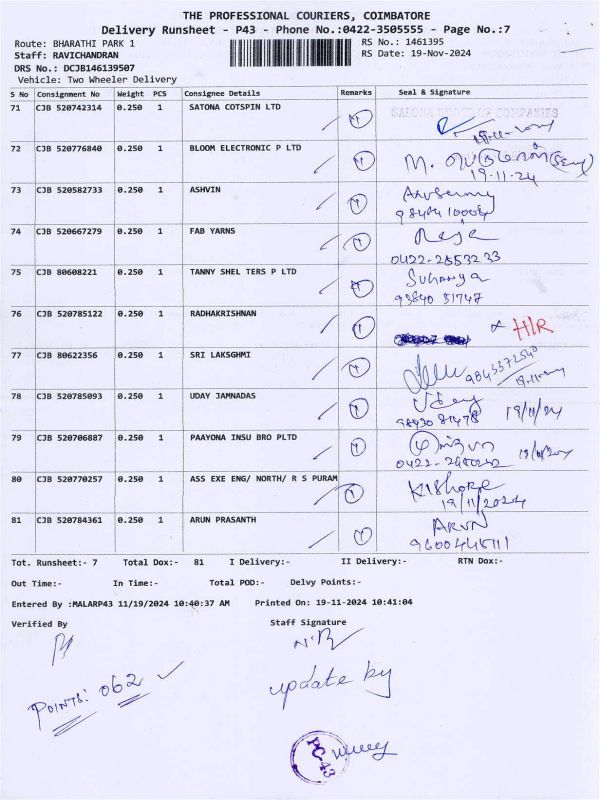 THE PROFESSIONAL COURIERS, COIMBATORE
Delivery Runsheet - P43 - Phone No.:0422-3505555 - Page No.:7
Route: BHARATHI PARK 1
RS No.: 1461395
Staff: RAVICHANDRAN
RS Date: 19-Nov-2024
DRS No.: DCJB146139507
Vehicle: Two Wheeler Delivery
S No Consignment No Weight PCS Consignee Details Remarks Seal & Signature
71 CJB 520742314 0.250 1 SATONA COTSPIN LTD
72 CJB 520776840 0.250 1 BLOOM ELECTRONIC P LTD
19-11-24
73 CJB 520582733 0.250 1 ASHVIN
74 CJB 520667279 0.250 1 FAB YARNS
0422-2553233
75 CJB 80608221 0.250 1 TANNY SHEL TERS P LTD Suhanya
93840 31747
76 CJB 520785122 0.250 1 RADHAKRISHNAN H/R
77 CJB 80622356 0.250 1 SRI LAKSGHMI
78 CJB 520785093 0.250 1 UDAY JAMNADAS Uday
98430 81478 19/11/24
79 CJB 520706887 0.250 1 PAAYONA INSU BRO PLTD
80 CJB 520770257 0.250 1 ASS EXE ENG/ NORTH/ R S PURAM Kishore
19/11/2024
81 CJB 520784361 0.250 1 ARUN PRASANTH ARUN
9600445111
Tot. Runsheet:- 7 Total Dox:- 81 I Delivery:- II Delivery:- RTN Dox:-
Out Time:- In Time:- Total POD:- Delvy Points:-
Entered By :MALARP43 11/19/2024 10:40:37 AM Printed On: 19-11-2024 10:41:04
Verified By Staff Signature
POINTS: 062
update by
PC-43